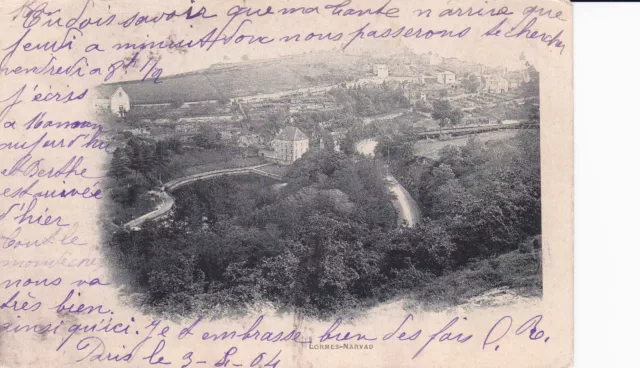 Tu dois savoir que ma tante n'arrive que
jeudi a minuit, donc nous passerons te chercher
vendredi a 8h 1/2
J'écris
a Maman
aujourd'hui
et Berthe
est arrivée
d'hier
Tout le
monde
nous va
très bien
ainsi qu'ici. Je t'embrasse bien des fois C. R.
Paris le 3-8-04
LORMES-NARVAU